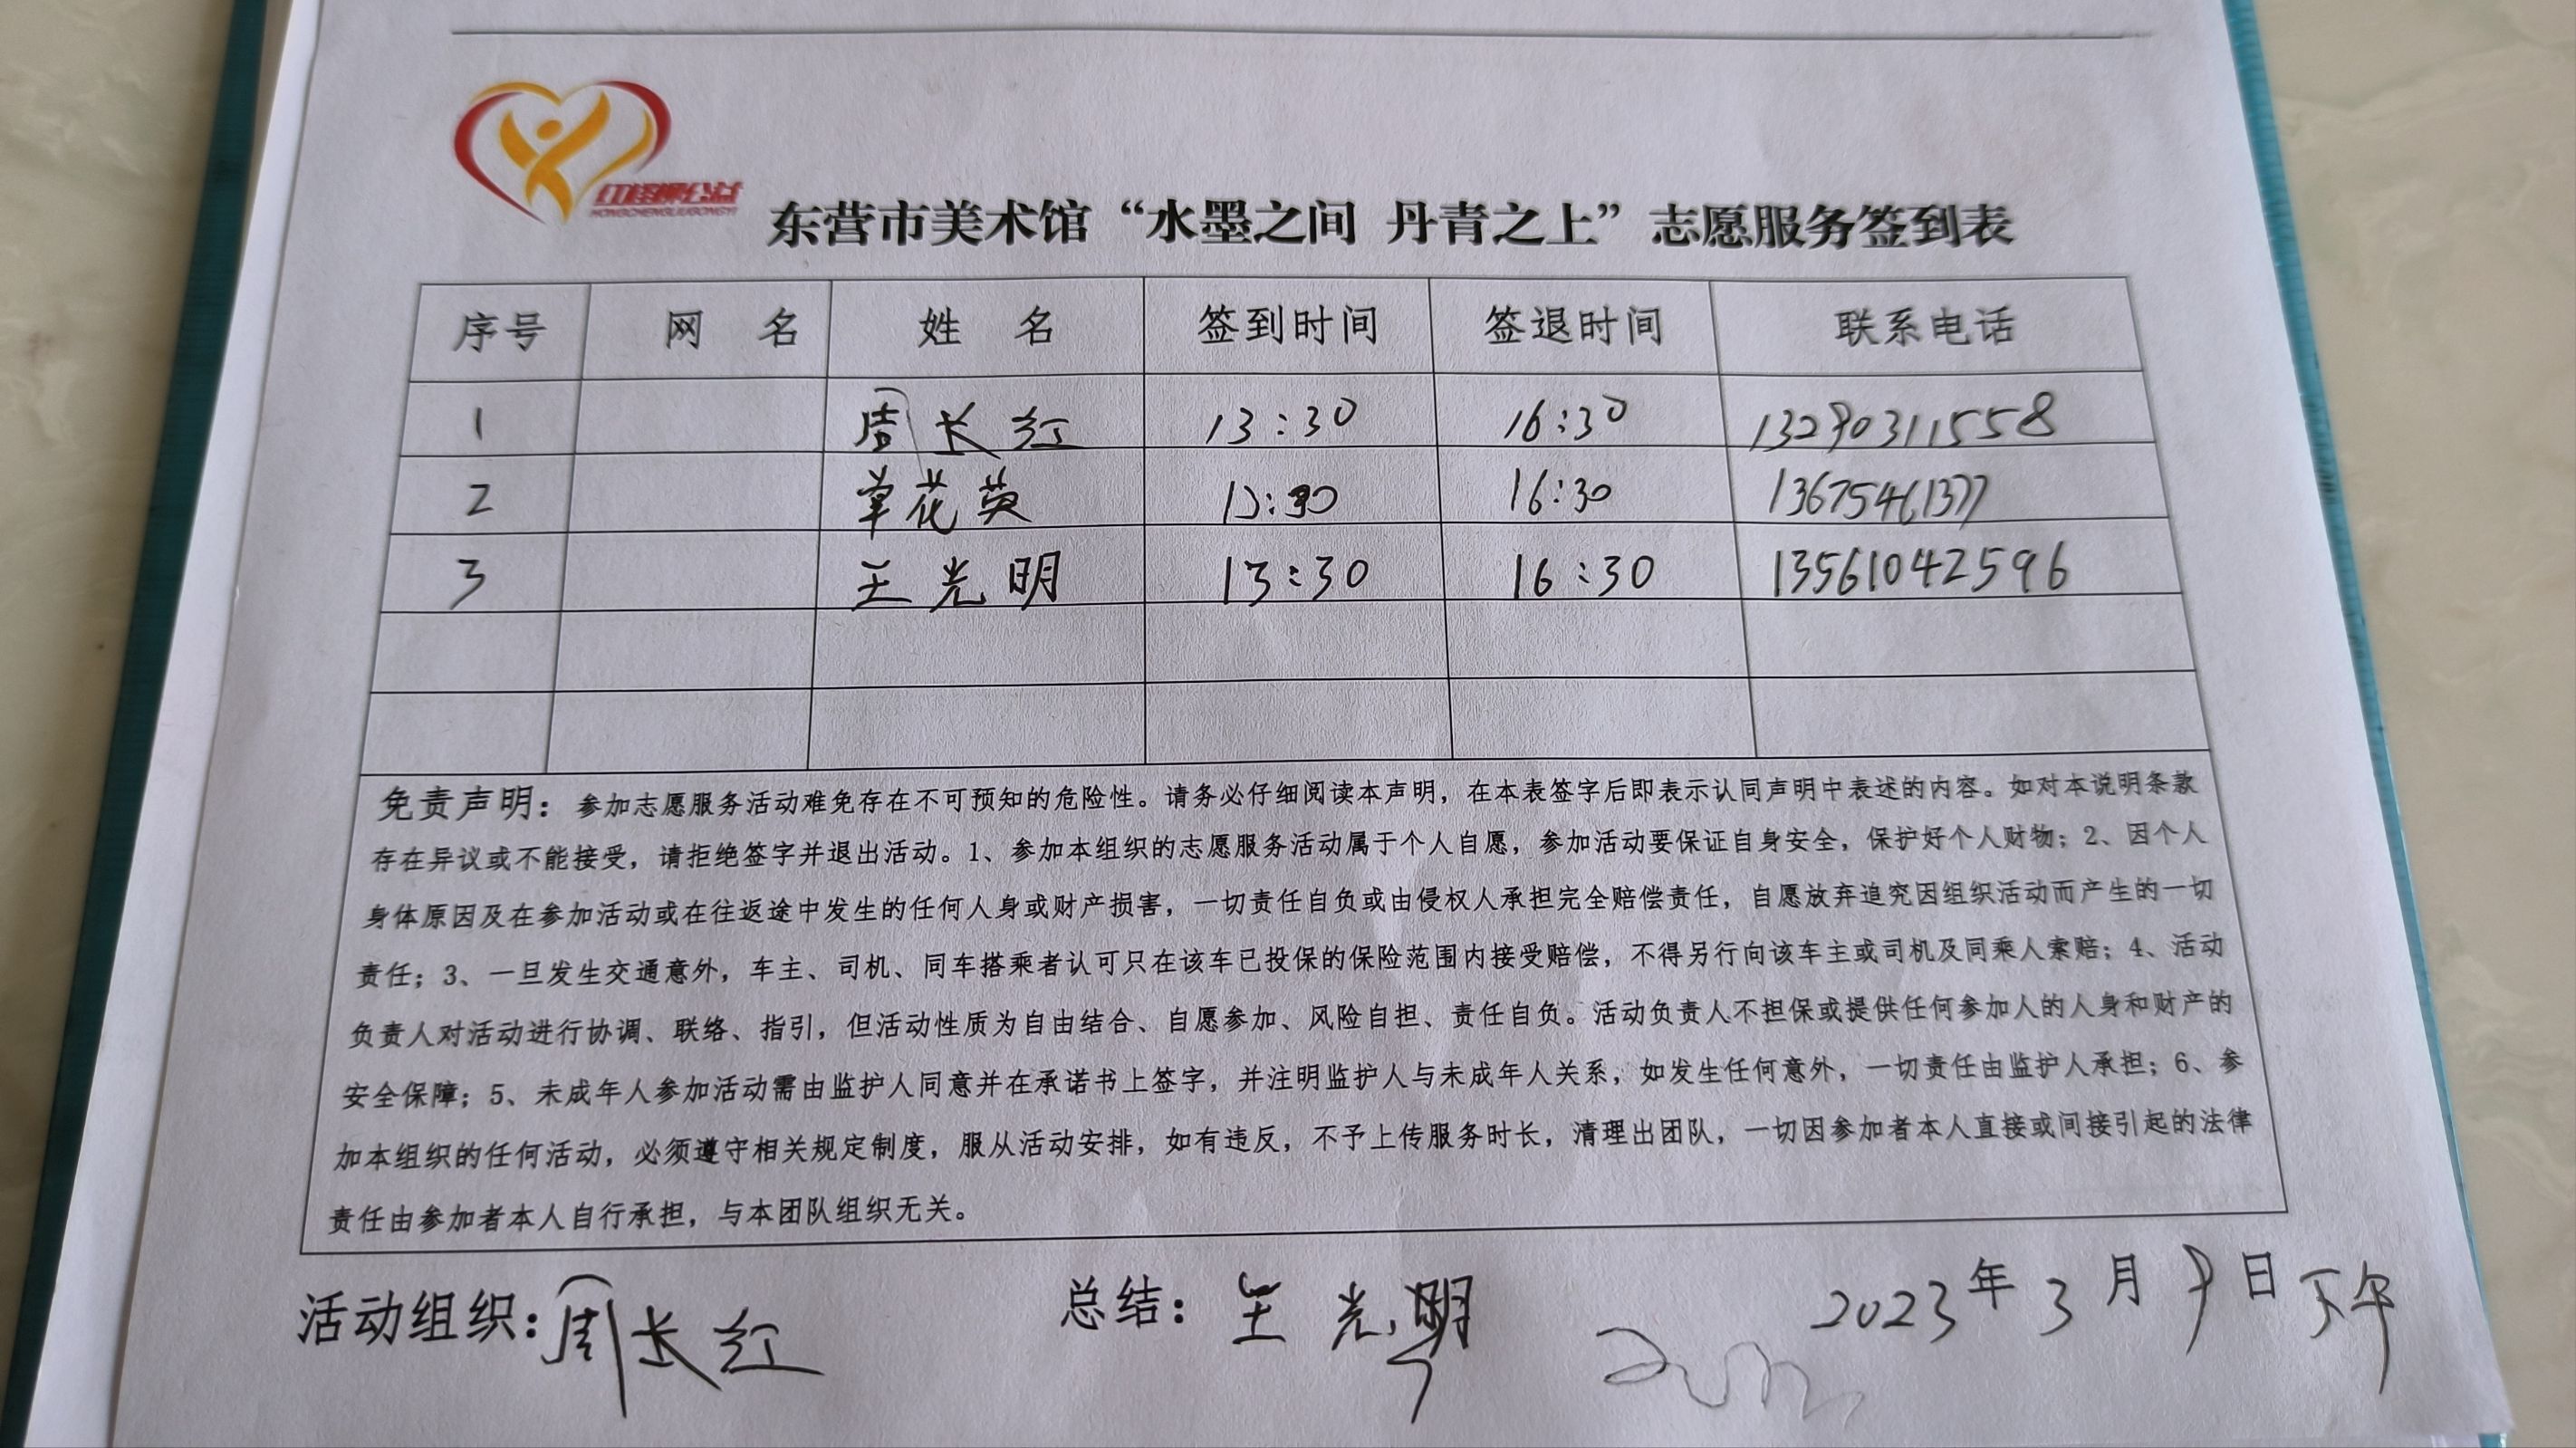 HONGCHENGLIUGONGYI
东营市美术馆“水墨之间 丹青之上”志愿服务签到表
序号 网 名 姓 名 签到时间 签退时间 联系电话
1 周长红 13:30 16:30 13290311558
2 单花英 13:30 16:30
3 王光明 13:30 16:30 13561042596
免责声明：参加志愿服务活动难免存在不可预知的危险性。请务必仔细阅读本声明，在本表签字后即表示认同声明中表述的内容。如对本说明条款
存在异议或不能接受，请拒绝签字并退出活动。1、参加本组织的志愿服务活动属于个人自愿，参加活动要保证自身安全，保护好个人财物；2、因个人
身体原因及在参加活动或在往返途中发生的任何人身或财产损害，一切责任自负或由侵权人承担完全赔偿责任，自愿放弃追究因组织活动而产生的一切
责任；3、一旦发生交通意外，车主、司机、同车搭乘者认可只在该车已投保的保险范围内接受赔偿，不得另行向该车主或司机及同乘人索赔；4、活动
负责人对活动进行协调、联络、指引，但活动性质为自由结合、自愿参加、风险自担、责任自负。活动负责人不担保或提供任何参加人的人身和财产的
安全保障；5、未成年人参加活动需由监护人同意并在承诺书上签字，并注明监护人与未成年人关系，如发生任何意外，一切责任由监护人承担；6、参
加本组织的任何活动，必须遵守相关规定制度，服从活动安排，如有违反，不予上传服务时长，清理出团队，一切因参加者本人直接或间接引起的法律
责任由参加者本人自行承担，与本团队组织无关。
活动组织：周长红 总结：王光明 2023年3月9日下午